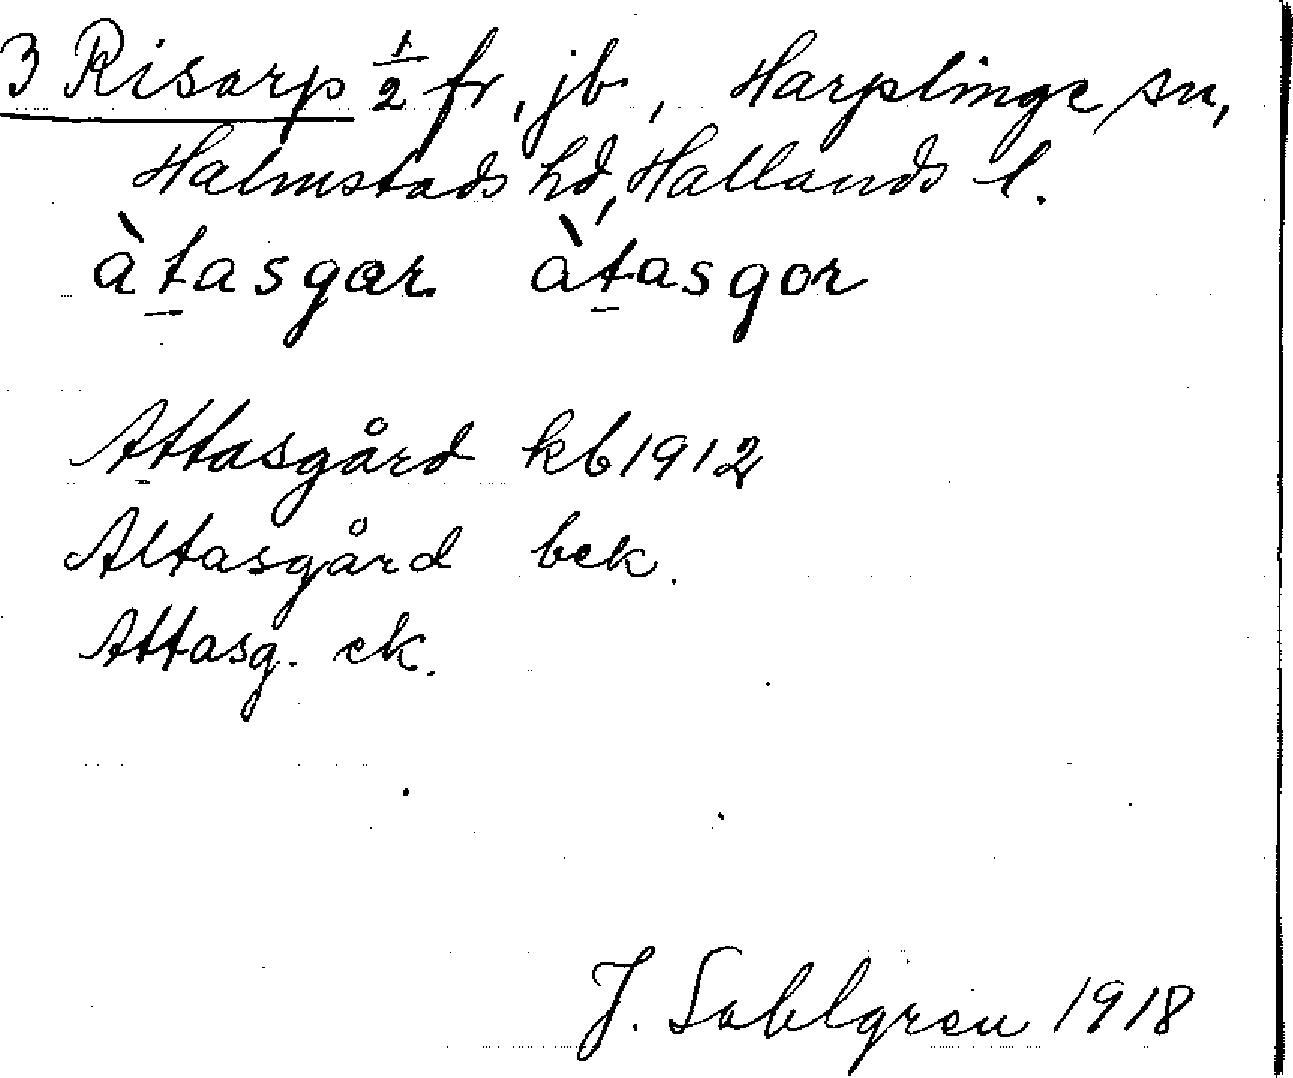 3 Risarp 1/2 fr, jb, Harplinge sn,
Halmstads hd, Hallands l.
àt̠asgœr. àt̠asgor
Attasgård kb 1912
Altasgård bek.
Attasg. ek.
J. Sahlgren 1918